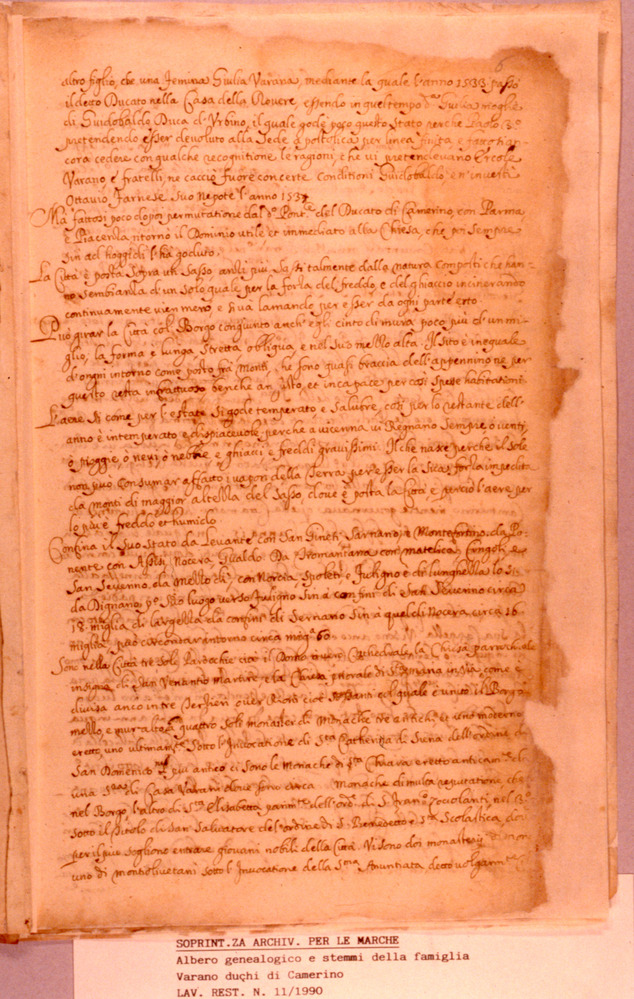 6
altro figlio, che una femina Giulia Varana, mediante la quale l'anno 1533 passò
il detto Ducato nella Casa della Rovere, essendo in quel tempo Giulia moglie
di Guidobaldo Duca d'Urbino, il quale godè poco questo stato perche Paolo 3º
pretendendo esser devoluto alla Sede Apostolica per linea finita e fatto an-
cora cedere con qualche recognitione le ragioni, che vi pretendevano Ercole
Varano e fratelli, ne cacciò fuore con certe Conditioni Guidobaldo e n'investì
Ottavio Farnese suo Nepote l'anno 153
Mà fattosi poco dopoi permutatione dal del Ducato di Camerino, con Parma
e Piacenza ritornò il Dominio utile et immediato alla Chiesa, che poi sempre
sin ad hoggidì l'hà goduto.
La Città è posta sopra un sasso anzi più sassi talmente dalla natura composti che han-
no sembianza d'un solo, quale per la forza del freddo, e del ghiaccio incinerando
continuamente vien meno, e si và lamando per esser da ogni parte erto
Può girar la Città col Borgo congiunto anch'egli cinto di mura poco più d'un mi-
glio, la forma è lunga stretta obliqua, e nel suo mezzo alta. Il sito è ineguale
d'ogni intorno come posto frà Monti, che sono quasi braccia dell'appennino ne per
questo resta infruttuoso benche angusto, et incapace per così spesse habitationi
L'aere si come per l'estate si gode temperato e salubre, così per lo restante dell'
anno è intemperato e dispiacevole, perche a vicenna vi Regnano sempre ò venti
ò pioggie, ò nevi, ò nebbie, e ghiacci e freddi gravissimi. Il che nasce perche il sole
non può consumar affatto i vapori della Terra per esser la sua forza impedita
da monti di maggior altezza del sasso, dove è posta la Città e perciò l'aere per
lo più è freddo et humido
Confina il suo stato da Levante con San Ginesi, Sarnano, e Montefortino, da Po-
nente con Assisi, Nocera, Gualdo. Da Tramontana con Matelica, Cingoli, e
San Severino, da Mezzo dì con Norcia, Spoleti, e Fuligno e di lunghezza lo
da Dignano luogo verso Fuligno sin à confini di San Severino circa
18 miglia di largezza da confini di Sernano sin à quelli di Nocera circa 16
miglia, può circondar intorno circa 60.
Sono nella Città tre sole Parochie cioè il Domo overo Cathedrale, la Chiesa parochiale
insigne di San Venantio Martire, e la Chiesa di Sta Maria in Via, come è
divisa anco in tre Terzieri over Rioni cioè col quale è unito il Borgo
mezzo, e mur'alto quattro soli monasteri di Monache tre antichi, et uno moderno
eretto uno ultimamte sotto l'Invocatione di Sta Catherina di Siena dell'ordine di
San Domenico più antico ci sono le Monache di Sta Chiara eretto anticamte
di Casa Varani dove sono circa Monache di molta reputatione,
nel Borgo, l'altro di Sta Elisabetta dell'ordne di S. Franco zoccolanti, nel
sotto il titolo di San Salvatore del'ordine di S. Benedetto e Sta Scolastica, dove
per il più sogliono entrare giovani nobili della Città. Vi sono doi monasterij
uno di montiolivetani sotto l'Invocatione della Sma Annuntiata detto volgarmte
SOPRINT.ZA ARCHIV. PER LE MARCHE
Albero genealogico e stemmi della famiglia
Varano duchi di Camerino
LAV. REST. N. 11/1990